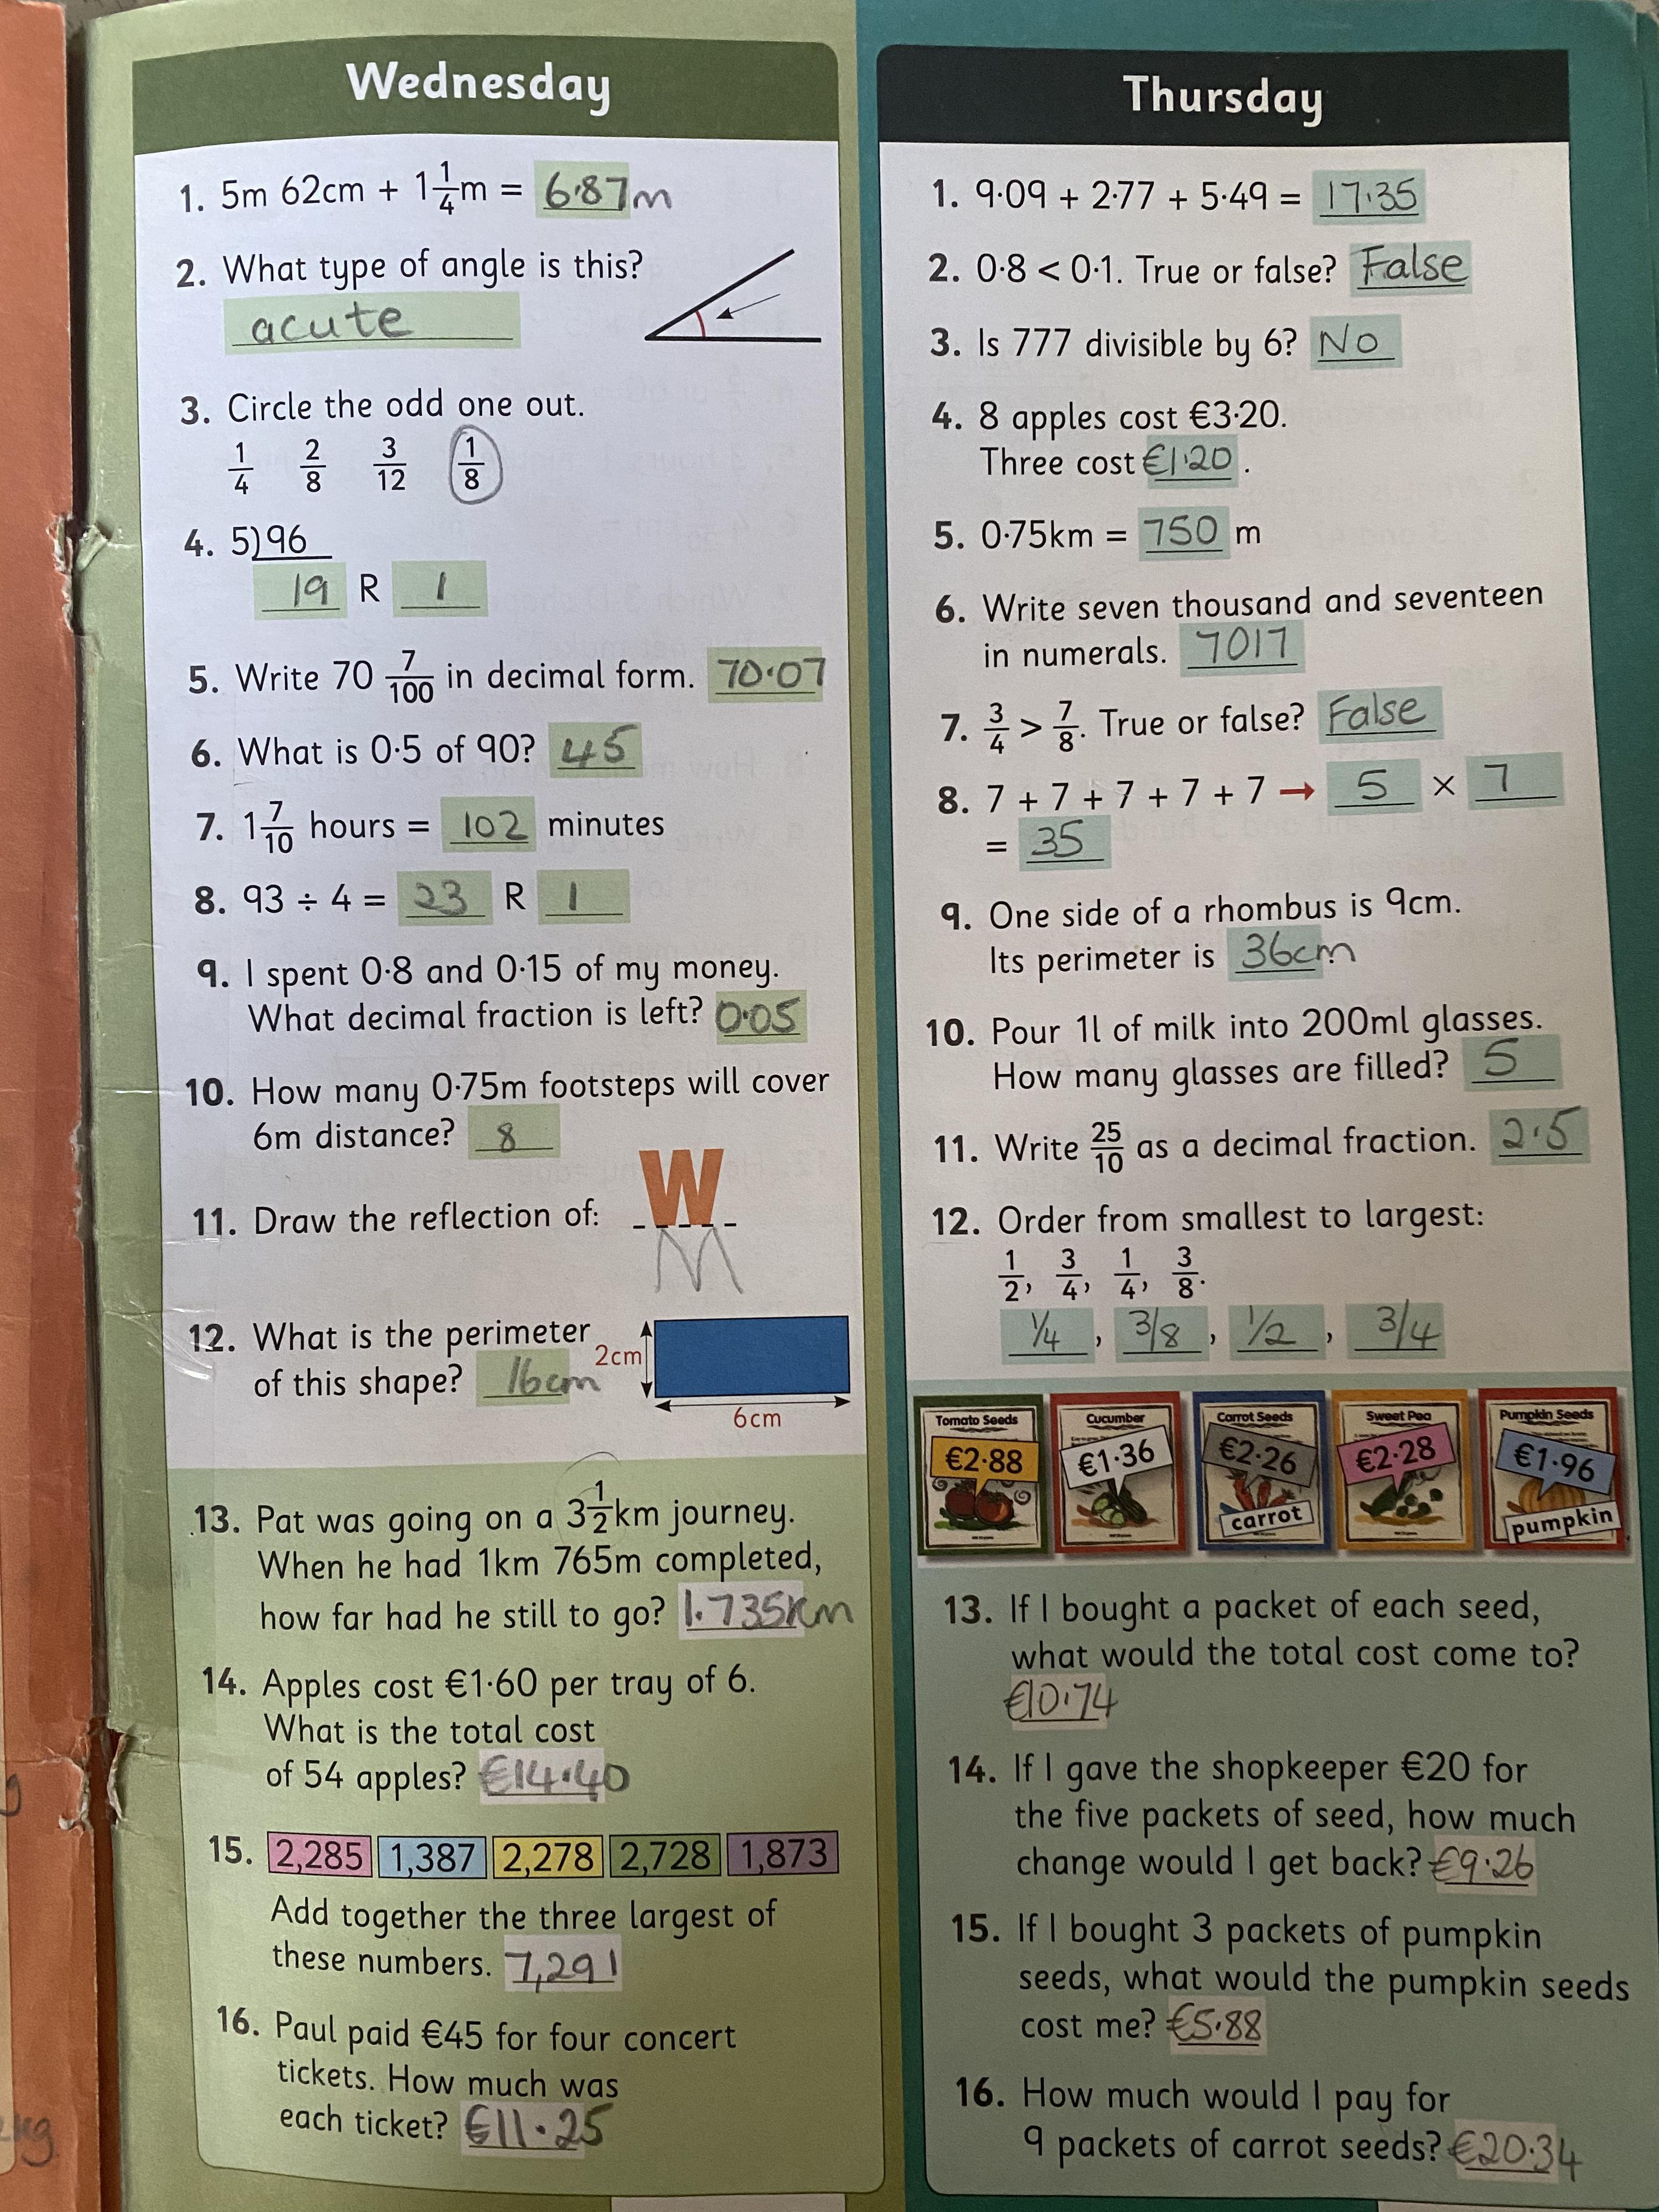 Wednesday
1. 5m 62cm + 1 1/4 m = 6·87m
2. What type of angle is this?
acute
3. Circle the odd one out.
1/4 2/8 3/12 1/8
4. 5)96
19 R 1
5. Write 70 7/100 in decimal form. 70·07
6. What is 0·5 of 90? 45
7. 1 7/10 hours = 102 minutes
8. 93 ÷ 4 = 23 R 1
9. I spent 0·8 and 0·15 of my money.
What decimal fraction is left? 0·05
10. How many 0·75m footsteps will cover
6m distance? 8
11. Draw the reflection of: W
M
12. What is the perimeter
of this shape? 16cm
2cm
6cm
13. Pat was going on a 3 1/2 km journey.
When he had 1km 765m completed,
how far had he still to go? 1.735km
14. Apples cost €1·60 per tray of 6.
What is the total cost
of 54 apples? €14·40
15. 2,285 1,387 2,278 2,728 1,873
Add together the three largest of
these numbers. 7,291
16. Paul paid €45 for four concert
tickets. How much was
each ticket? €11·25
Thursday
1. 9·09 + 2·77 + 5·49 = 17·35
2. 0·8 < 0·1. True or false? False
3. Is 777 divisible by 6? No
4. 8 apples cost €3·20.
Three cost €1·20.
5. 0·75km = 750 m
6. Write seven thousand and seventeen
in numerals. 7017
7. 3/4 > 7/8. True or false? False
8. 7 + 7 + 7 + 7 + 7 → 5 × 7
= 35
9. One side of a rhombus is 9cm.
Its perimeter is 36cm.
10. Pour 1l of milk into 200ml glasses.
How many glasses are filled? 5
11. Write 25/10 as a decimal fraction. 2·5
12. Order from smallest to largest:
1/2, 3/4, 1/4, 3/8.
1/4, 3/8, 1/2, 3/4
Tomato Seeds Cucumber Carrot Seeds Sweet Pea Pumpkin Seeds
€2·88 €1·36 €2·26 €2·28 €1·96
carrot pumpkin
13. If I bought a packet of each seed,
what would the total cost come to?
€10·74
14. If I gave the shopkeeper €20 for
the five packets of seed, how much
change would I get back? €9·26
15. If I bought 3 packets of pumpkin
seeds, what would the pumpkin seeds
cost me? €5·88
16. How much would I pay for
9 packets of carrot seeds? €20·34